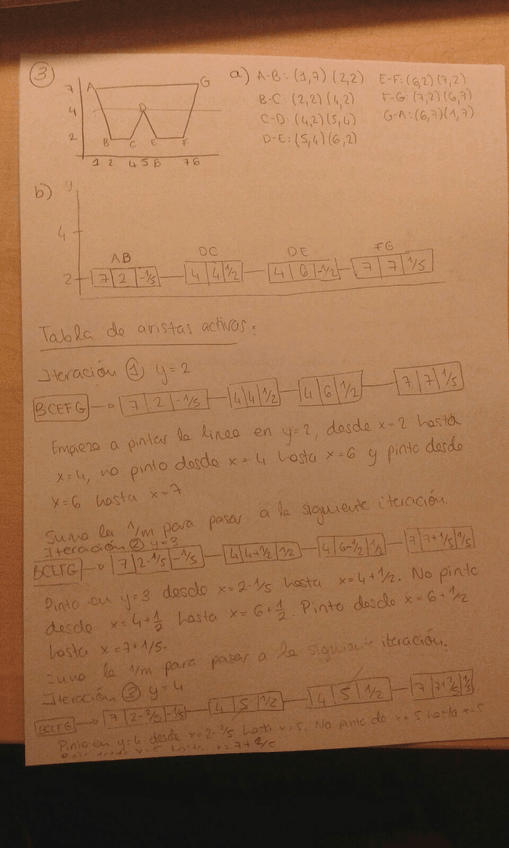 ③
7 A G
4 D
2 B C E F
1 2 4 5 6 7 6
a) A-B: (1,7) (2,2) E-F: (6,2) (7,2)
B-C: (2,2) (4,2) F-G: (7,2) (6,7)
C-D: (4,2) (5,4) G-A: (6,7) (1,7)
D-E: (5,4) (6,2)
b) y
4
AB DC DE FG
2 7 2 -1/5 4 4 1/2 4 6 -1/2 7 7 1/5
Tabla de aristas activas:
Iteración ① y=2
BCEFG 7 2 -1/5 4 4 1/2 4 6 1/2 7 7 1/5
Empiezo a pintar la linea en y=2, desde x=2 hasta
x=4, no pinto desde x=4 hasta x=6 y pinto desde
x=6 hasta x=7
Sumo la 1/m para pasar a la siguiente iteración.
Iteración ② y=3
BCEFG 7 2-1/5 -1/5 4 4+1/2 1/2 4 6-1/2 1/2 7 7+1/5 1/5
Pinto en y=3 desde x=2-1/5 hasta x=4+1/2. No pinto
desde x=4+1/2 hasta x=6+1/2. Pinto desde x=6+1/2
hasta x=7+1/5.
Sumo la 1/m para pasar a la siguiente iteración.
Iteración ③ y=4
BCEFG 7 2-2/5 -1/5 4 5 1/2 4 5 1/2 7 7+2/5 1/5
Pinto en y=4 desde x=2-2/5 hasta x=5. No pinto de x=5 hasta x=5
x=7+2/5